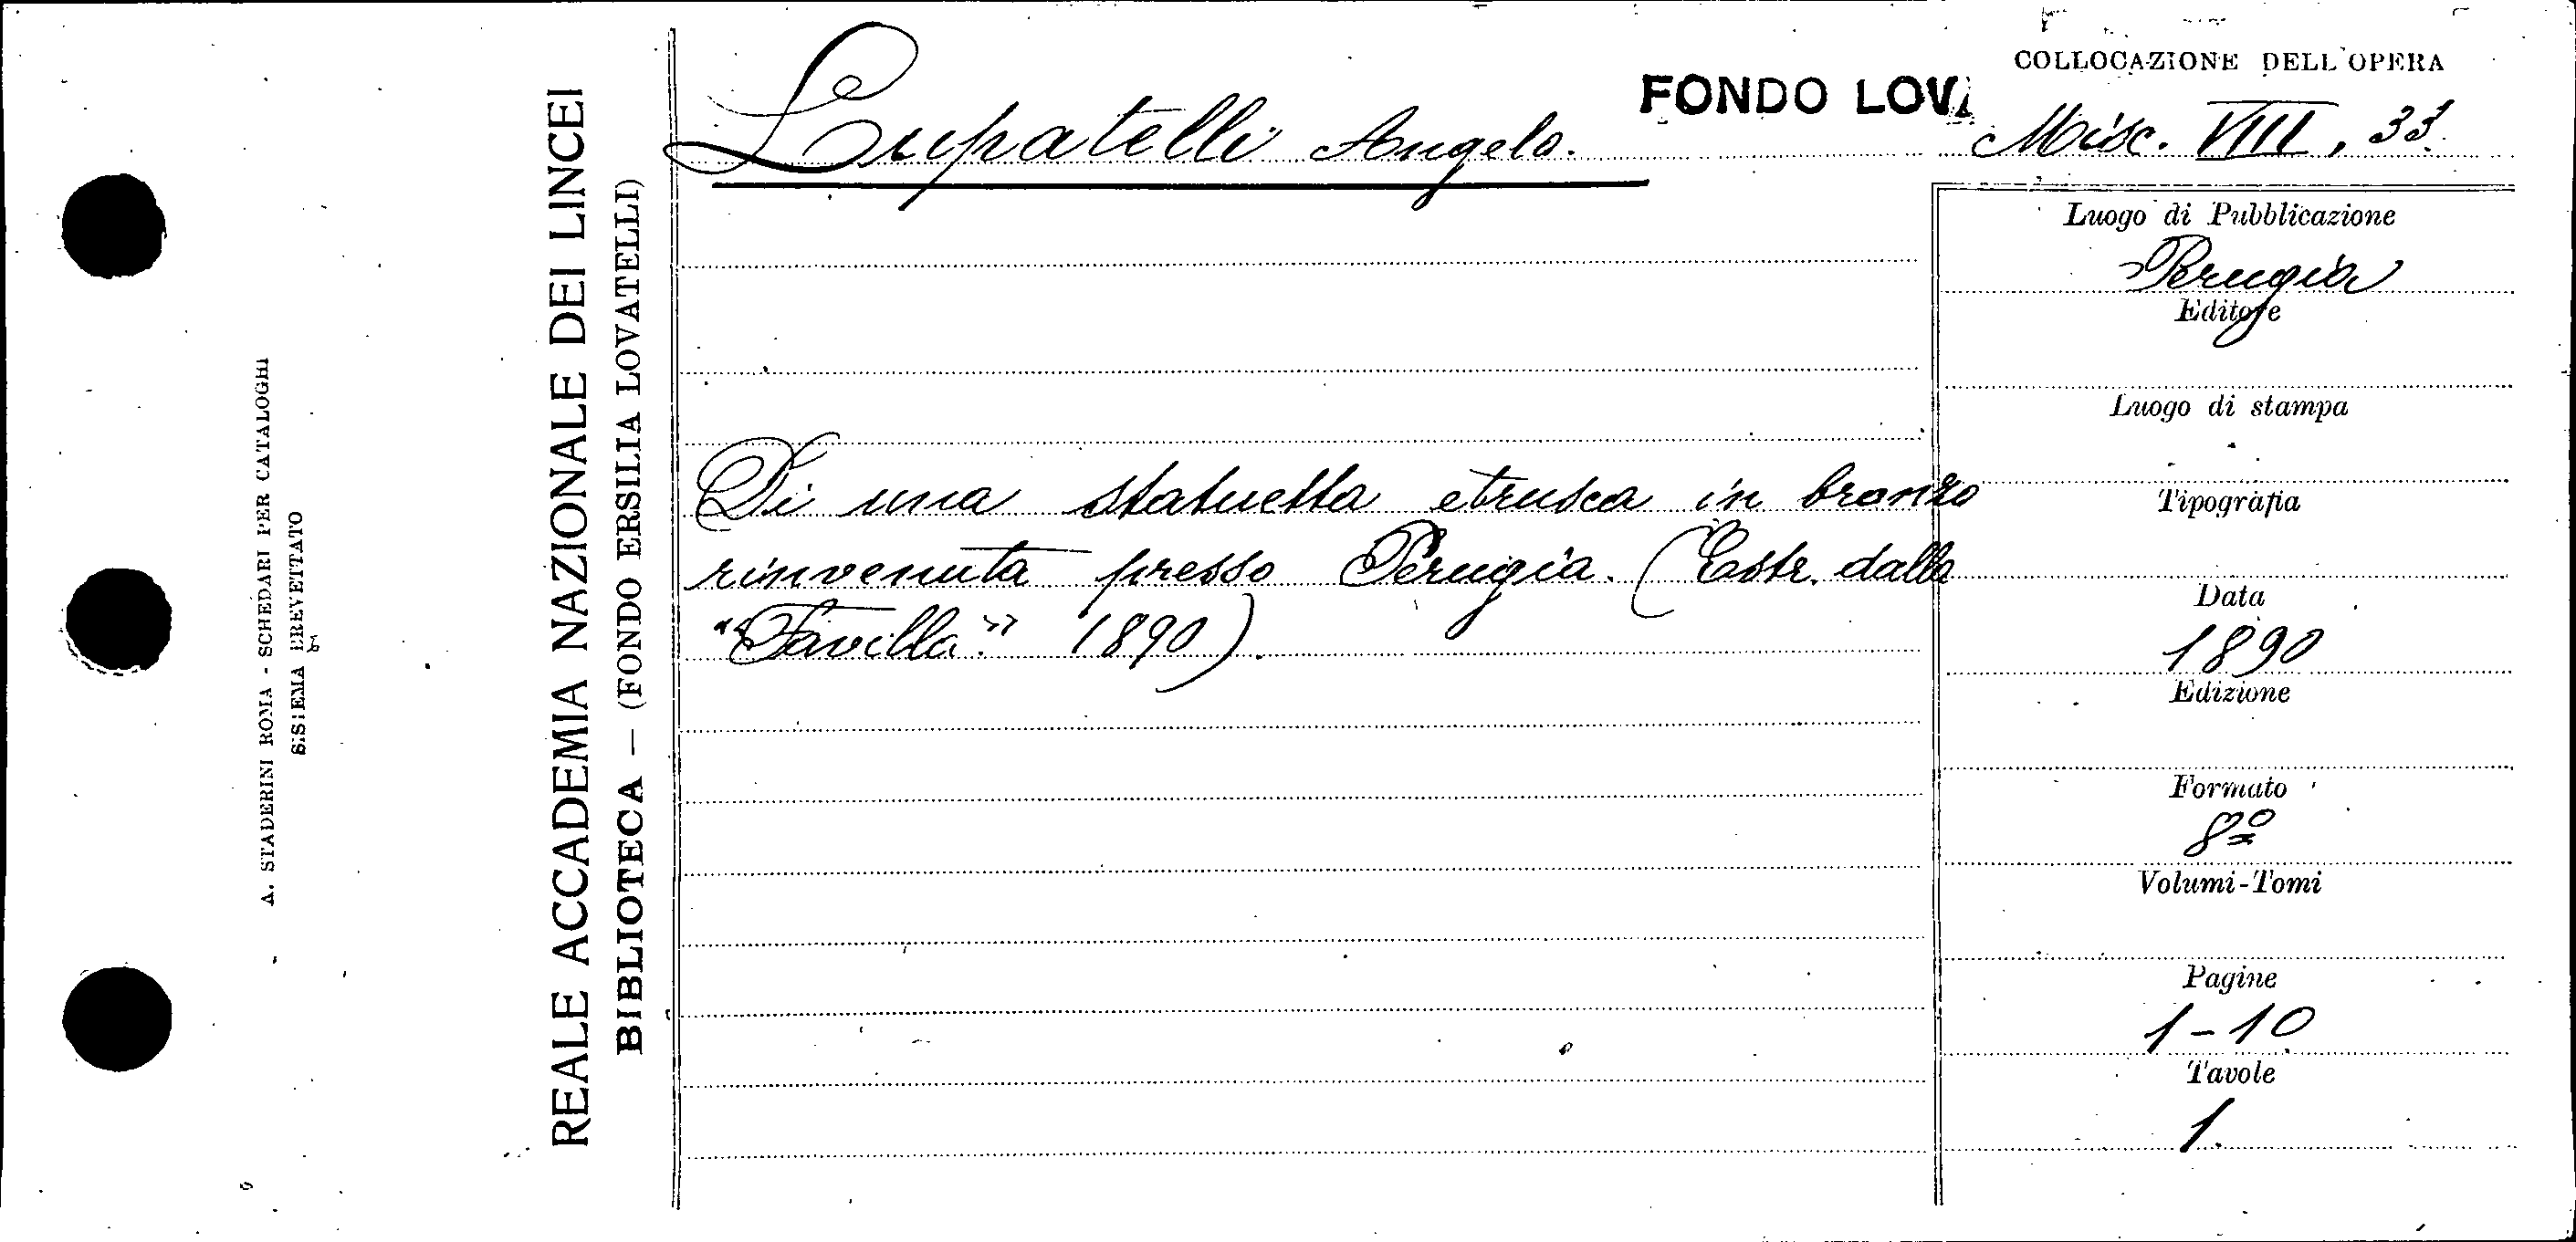 A. STADERINI ROMA - SCHEDARI PER CATALOGHI
SISTEMA BREVETTATO
REALE ACCADEMIA NAZIONALE DEI LINCEI
BIBLIOTECA — (FONDO ERSILIA LOVATELLI)
Lupatelli Angelo.
FONDO LOVA
COLLOCAZIONE DELL'OPERA
Misc. VIII, 33.
Di una statuetta etrusca in bronzo
rinvenuta presso Perugia. (Estr. dalla
"Favilla." 1890).
Luogo di Pubblicazione
Perugia
Editore
Luogo di stampa
Tipografia
Data
1890
Edizione
Formato
8º
Volumi-Tomi
Pagine
1-10
Tavole
1.